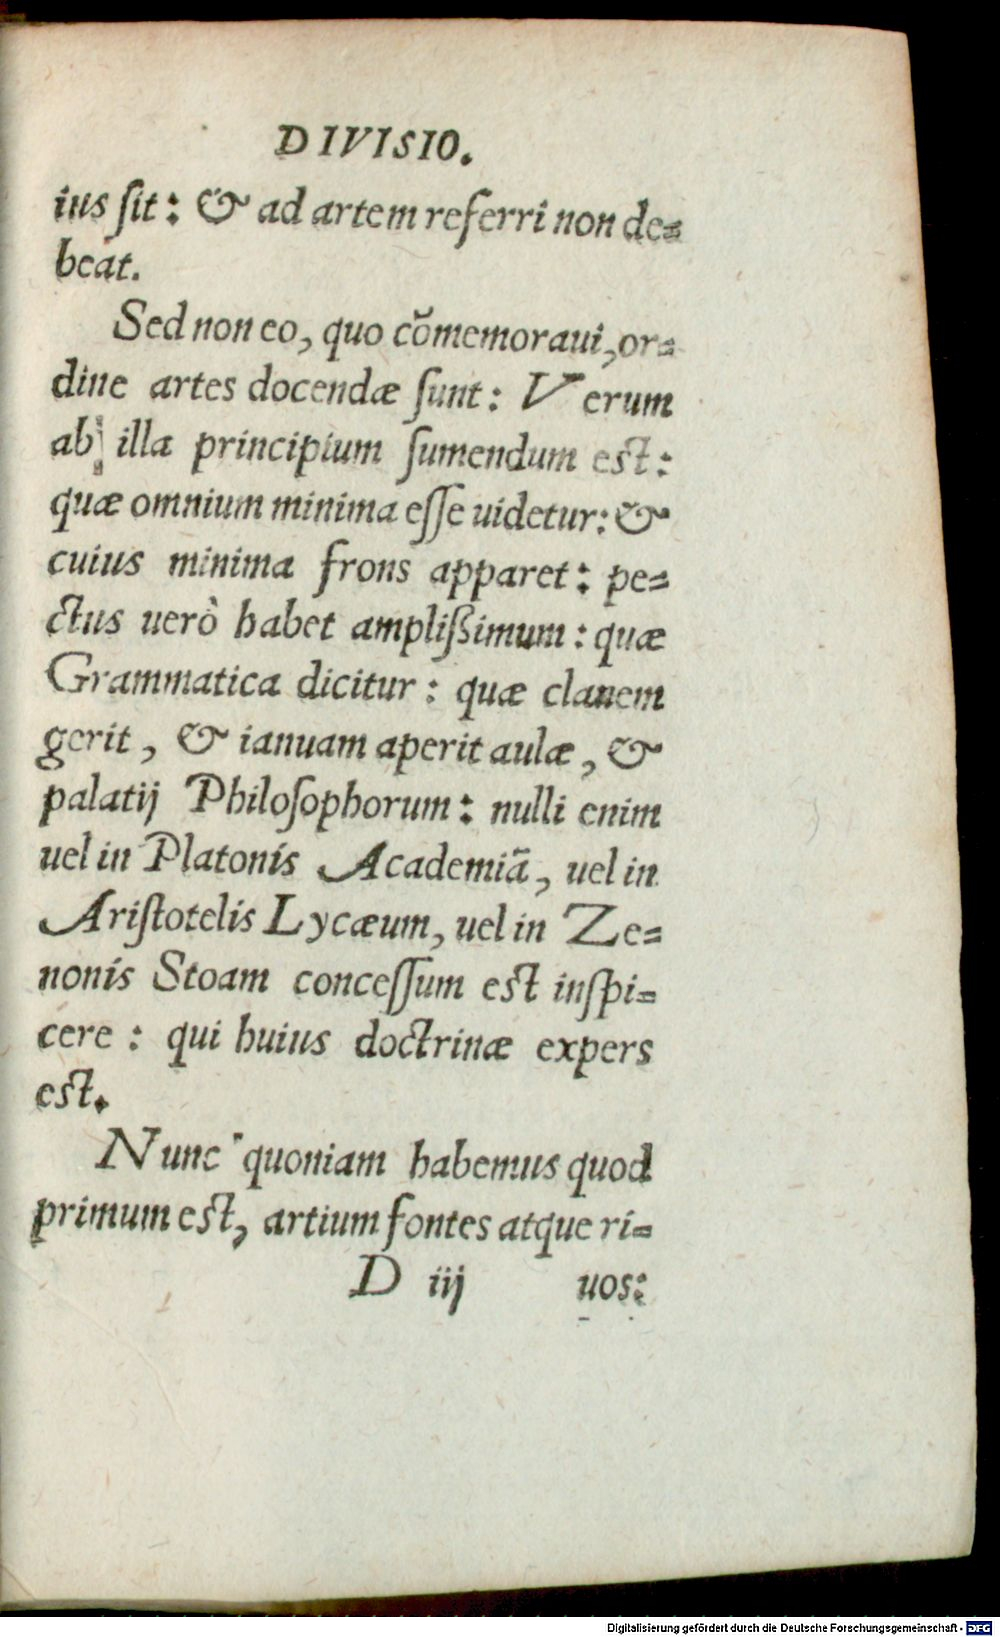 DIVISIO.
ius ſit: & ad artem referri non de=
beat.
Sed non eo, quo cõmemoraui, or=
dine artes docendæ ſunt: Verum
ab illa principium ſumendum eſt:
quæ omnium minima eſſe uidetur: &
cuius minima frons apparet: pe=
ctus uerò habet ampliſsimum: quæ
Grammatica dicitur: quæ clauem
gerit, & ianuam aperit aulæ, &
palatij Philoſophorum: nulli enim
uel in Platonis Academiã, uel in
Ariſtotelis Lycæum, uel in Ze=
nonis Stoam conceſſum eſt inſpi=
cere: qui huius doctrinæ expers
eſt.
Nunc quoniam habemus quod
primum eſt, artium fontes atque ri=
D iij uos:
Digitalisierung gefördert durch die Deutsche Forschungsgemeinschaft - DFG